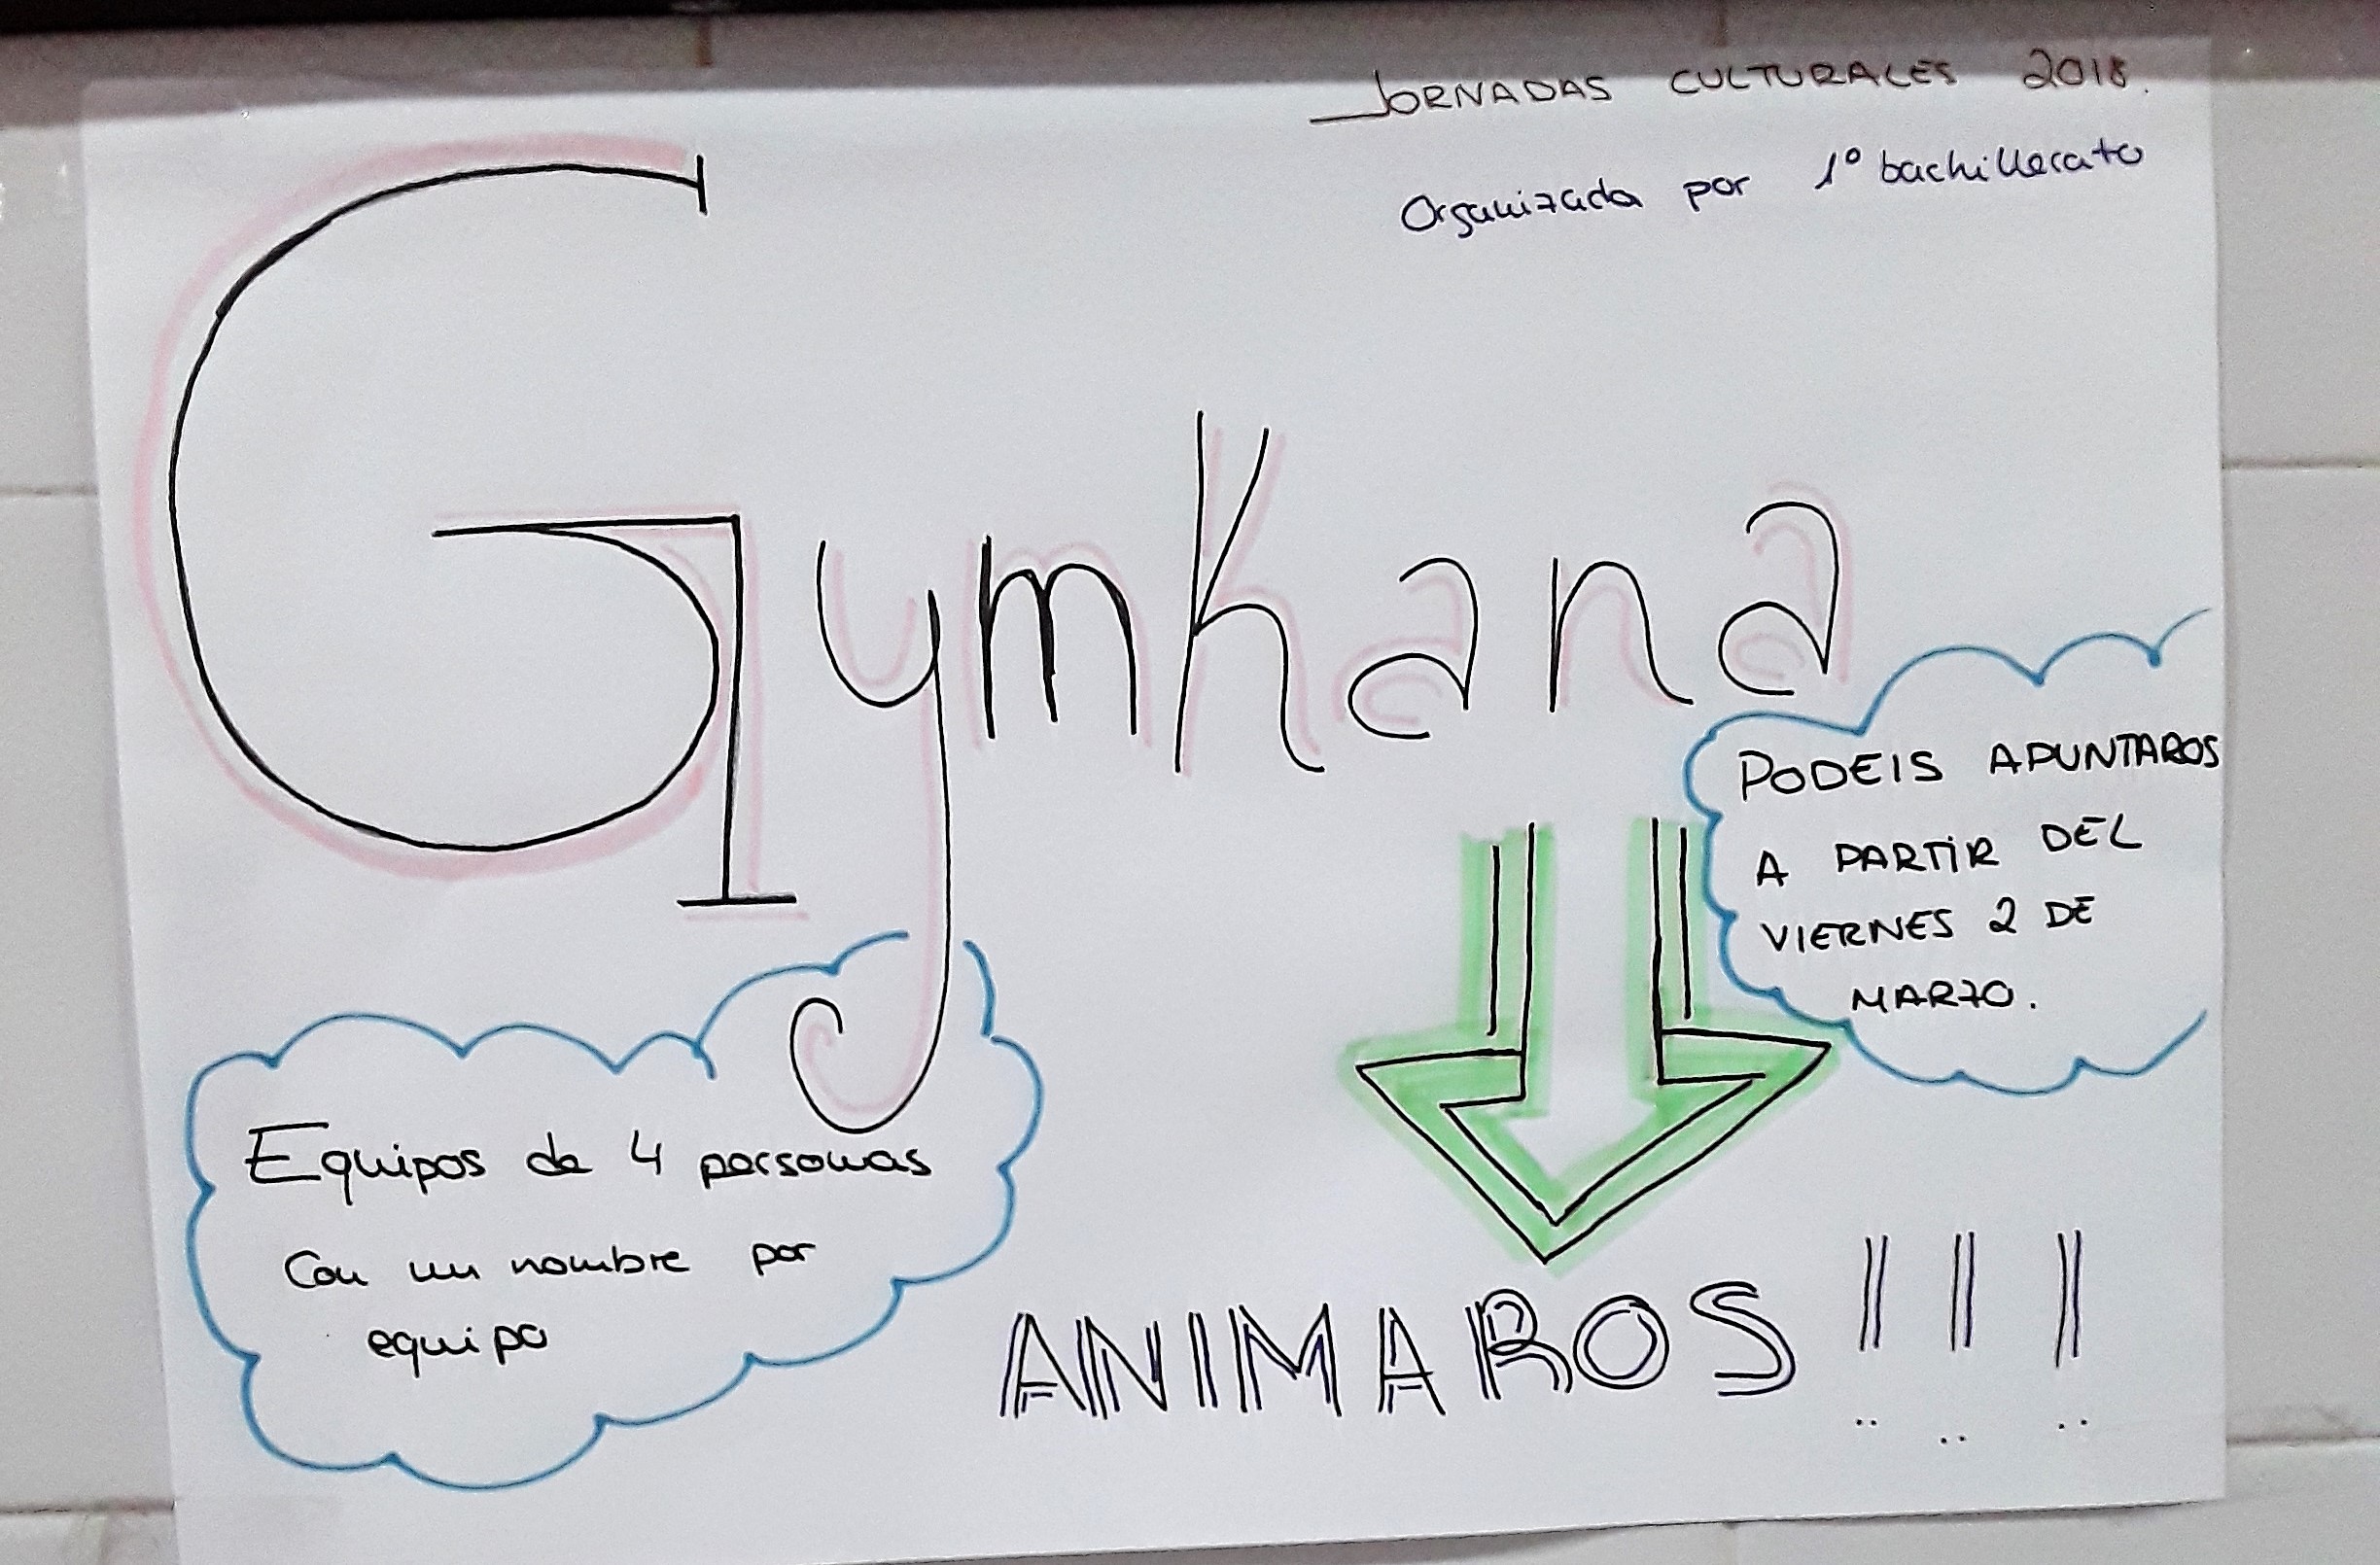 JORNADAS CULTURALES 2018.
Organizada por 1º bachillerato
Gymkana
PODEIS APUNTAROS
A PARTIR DEL
VIERNES 2 DE
MARZO.
Equipos de 4 personas
Con un nombre por
equipo
ANIMAROS!!!